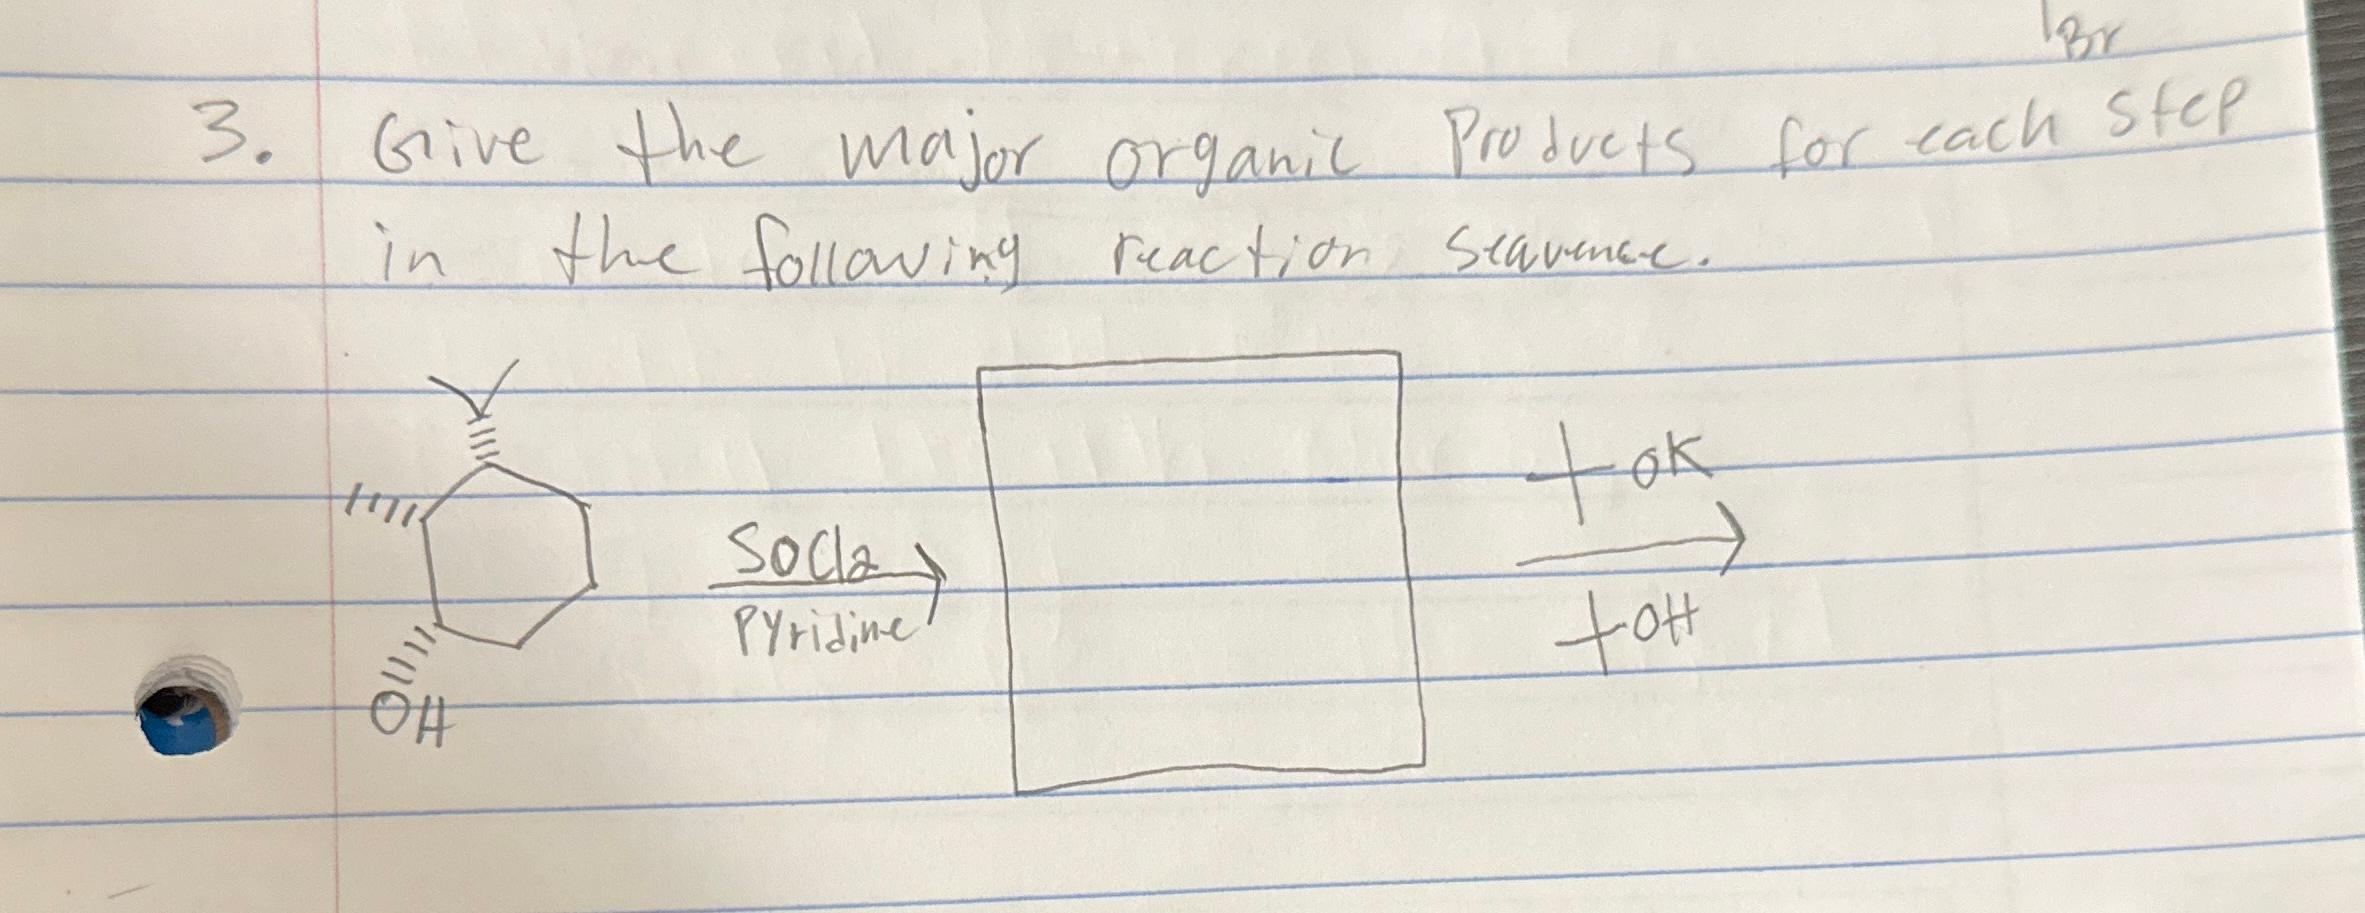 Br
3. Give the major organic Products for each step
in the following reaction sequence.
OK
SOCl2
Pyridine
OH
OH